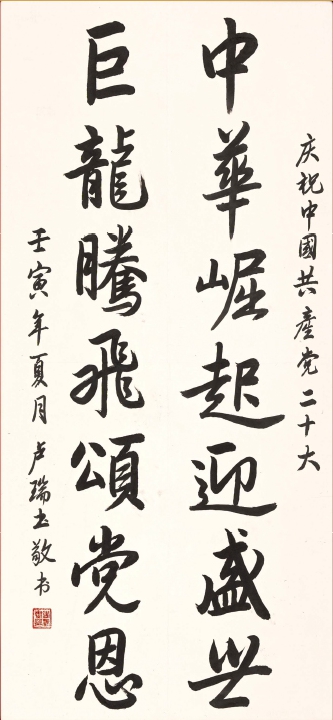 庆祝中國共產党二十大
中華崛起迎盛世
巨龍騰飛頌党恩
壬寅年夏月卢瑞土敬书